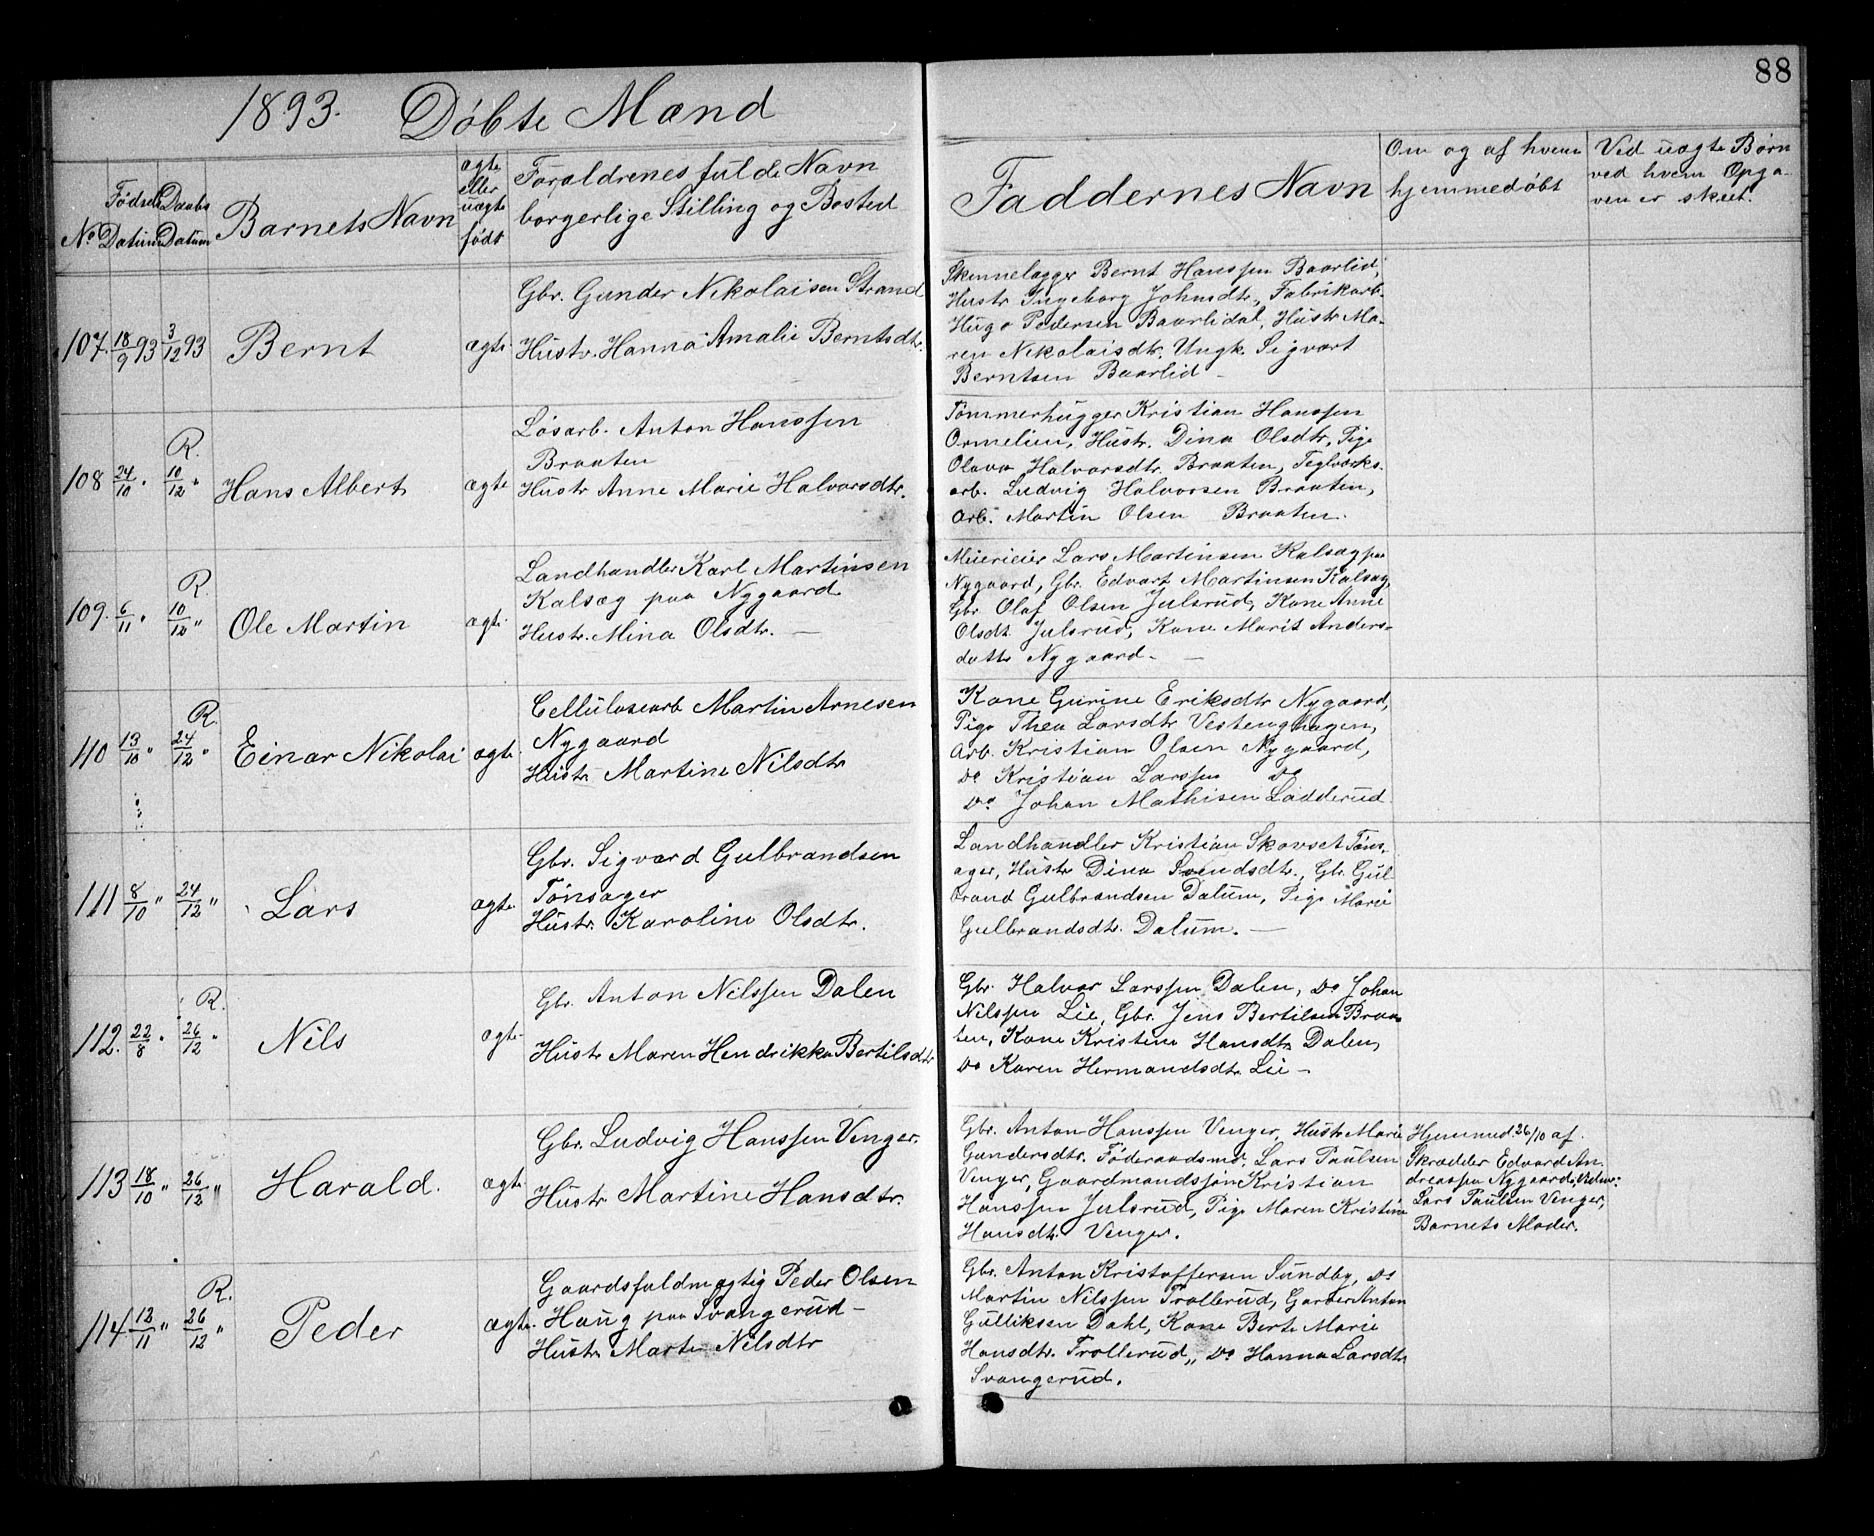 88
1893. Döbte Mænd
No
Födsels Datum
Daabs Datum
Barnets Navn
ægte eller uægte födt
Forældrenes fulde Navn
borgerlige Stilling og Bosted
Faddernes Navn
Om og af hvem
hjemmedöbt
Ved uægte Börn
ved hvem Opga-
ven er skeet.
107. 18/9 93 3/12 93 Bernt ægte
Gbr. Gunder Nikolaisen Strand
Hustr. Hanna Amalie Berntsdtr.
Skinnelægger Bernt Hanssen Baarlid,
Hustr Ingeborg Johnsdtr., Fabrikarb.
Hugo Pedersen Baarlidal, Hustr Ma-
ren Nikolaisdtr. Ungk. Sigvart
Berntsen Baarlid –
R.
108 24/10 " 10/12 " Hans Albert ægte
Lösarb. Anton Hanssen
Braaten
Hustr Anne Marie Halvorsdtr.
Tömmerhugger Kristian Hanssen
Ormelien, Hustr. Dina Olsdtr, Pige
Olava Halvorsdtr. Braaten, Teglværks-
arb. Ludvig Halvorsen Braaten,
Arb. Martin Olsen Braaten.
R.
109. 6/11 " 10/12 " Ole Martin ægte
Landhandler Karl Martinsen
Kalsæg paa Nygaard
Hustr. Mina Olsdtr. –
Meierieier Lars Martinsen Kalsæg paa
Nygaard, Gbr. Edvart Martinsen Kalsæg,
Gbr Olaf Olsen Julsrud, Kone Anne
Olsdt Julsrud, Kone Marit Anders-
dattr Nygaard. –
R.
110 13/10 " 24/12 " Einar Nikolai ægte
Cellulosearb Martin Arnesen
Nygaard
Hustr Martine Nilsdtr
Kone Gurine Eriksdtr Nygaard,
Pige Thea Larsdtr Vestenghagen,
Arb. Kristian Olsen Nygaard,
Do Kristian Larssen Do
Do Johan Mathisen Ladderud
111 8/10 " 24/12 " Lars ægte
Gbr. Sigvard Gulbrandsen
Tönsager
Hustr. Karoline Olsdtr.
Landhandler Kristian Skovset Töns-
ager, Hustr Dina Svendsdtr., Gbr. Gul
brand Gulbrandsen Dalum, Pige Marie
Gulbrandsdtr. Dalum. –
R.
112. 22/8 " 26/12 " Nils ægte
Gbr. Anton Nilssen Dalen
Hustr Maren Hendrikka Bertilsdtr
Gbr. Halvor Larssen Dalen, Do Johan
Nilssen Lie, Gbr. Jens Bertilsen Braa-
ten, Kone Kristine Hansdtr Dalen,
Do Karen Hermandsdtr. Lie –
113 18/10 " 26/12 " Harald. ægte
Gbr. Ludvig Hanssen Venger.
Hustr Martine Hansdtr.
Gbr. Anton Hanssen Venger, Hustr Marie
Gundersdtr. Föderaadsmd. Lars Paulsen
Venger, Gaardmandssön Kristian
Hanssen Julsrud, Pige Maren Kristine
Hansdtr. Venger.
Hjemmed. 26/10 af
Skrædder Edvard An-
dreassen Nygaard. Vidner:
Lars Paulsen Venger,
Barnets Moder.
R.
114 12/11 " 26/12 " Peder ægte
Gaardsfuldmægtig Peder Olsen
Haug paa Svangerud –
Hustr. Marte Nilsdtr
Gbr. Anton Kristoffersen Sundby, Do
Martin Nilssen Trollerud, Garver Anton
Gulliksen Dahl, Kone Berte Marie
Hansdtr. Trollerud, Do Hanna Larsdtr
Svangerud.